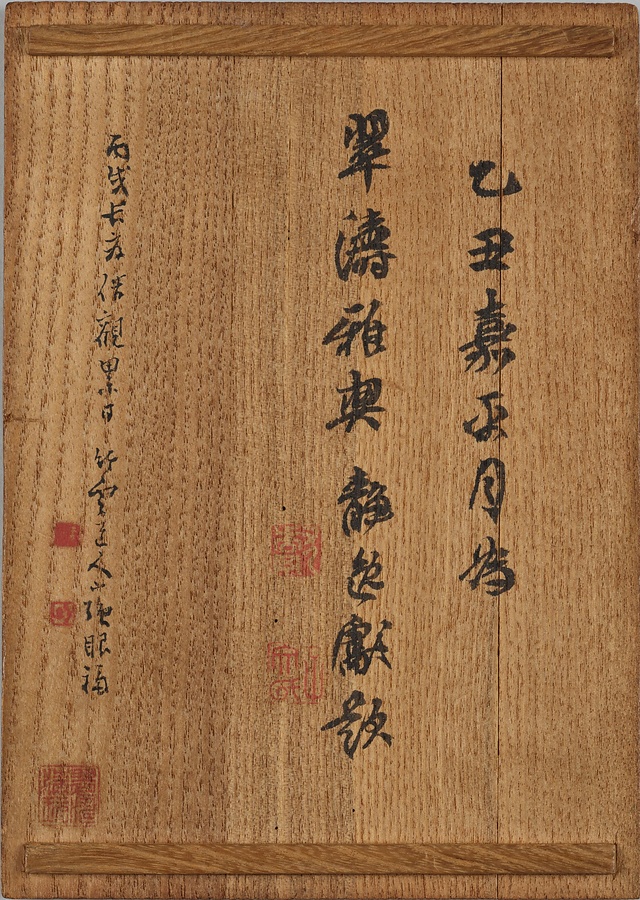 乙丑嘉平月為
翠濤雅契 静逸獻題
丙戌長夏借觀累日 竹雲道人 強眼福